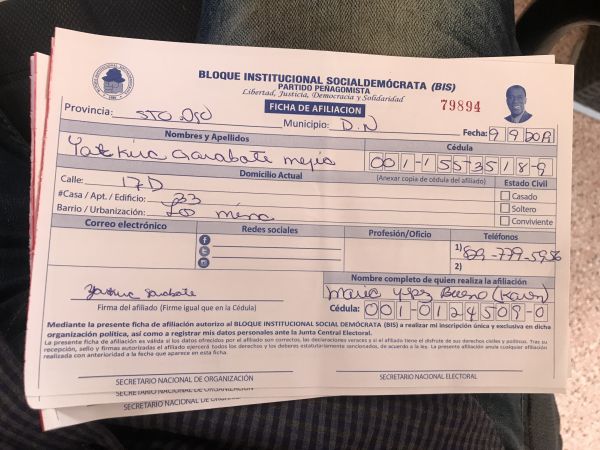 BLOQUE INSTITUCIONAL SOCIALDEMÓCRATA (BIS)
PARTIDO PEÑAGOMISTA
Libertad, Justicia, Democracia y Solidaridad
FICHA DE AFILIACION
79894
Provincia: STO DGO Municipio: D.N Fecha: 9 9 2019
Nombres y Apellidos Cédula
Garabote mejia 001-1553518-9
Domicilio Actual (Anexar copia de cédula del afiliado) Estado Civil
Calle: 17 D Casado
#Casa / Apt. / Edificio: 33 Soltero
Barrio / Urbanización: Los mina Conviviente
Correo electrónico Redes sociales Profesión/Oficio Teléfonos
1) 829-779-5956
2)
Nombre completo de quien realiza la afiliación
Maria Bueno (Karen)
Firma del afiliado (Firme igual que en la Cédula) Cédula: 001-0124509-0
Mediante la presente ficha de afiliación autorizo al BLOQUE INSTITUCIONAL SOCIAL DEMÓCRATA (BIS) a realizar mi inscripción única y exclusiva en dicha
organización política, así como a registrar mis datos personales ante la Junta Central Electoral.
La presente ficha de afiliación es válida si los datos ofrecidos por el afiliado son correctos, las declaraciones veraces y si el afiliado tiene el disfrute de sus derechos civiles y políticos. Tras su
recepción, sello y firmas autorizadas el afiliado ejercerá todos los derechos y los deberes estatutariamente sancionados, de acuerdo a la ley. La presente afiliación anula cualquier afiliación
realizada con anterioridad a la fecha que aparece en esta ficha.
SECRETARIO NACIONAL DE ORGANIZACIÓN SECRETARIO NACIONAL ELECTORAL
SECRETARIO NACIONAL DE ORGANIZACIÓN
SECRETARIO NACIONAL DE ORGANIZACIÓN